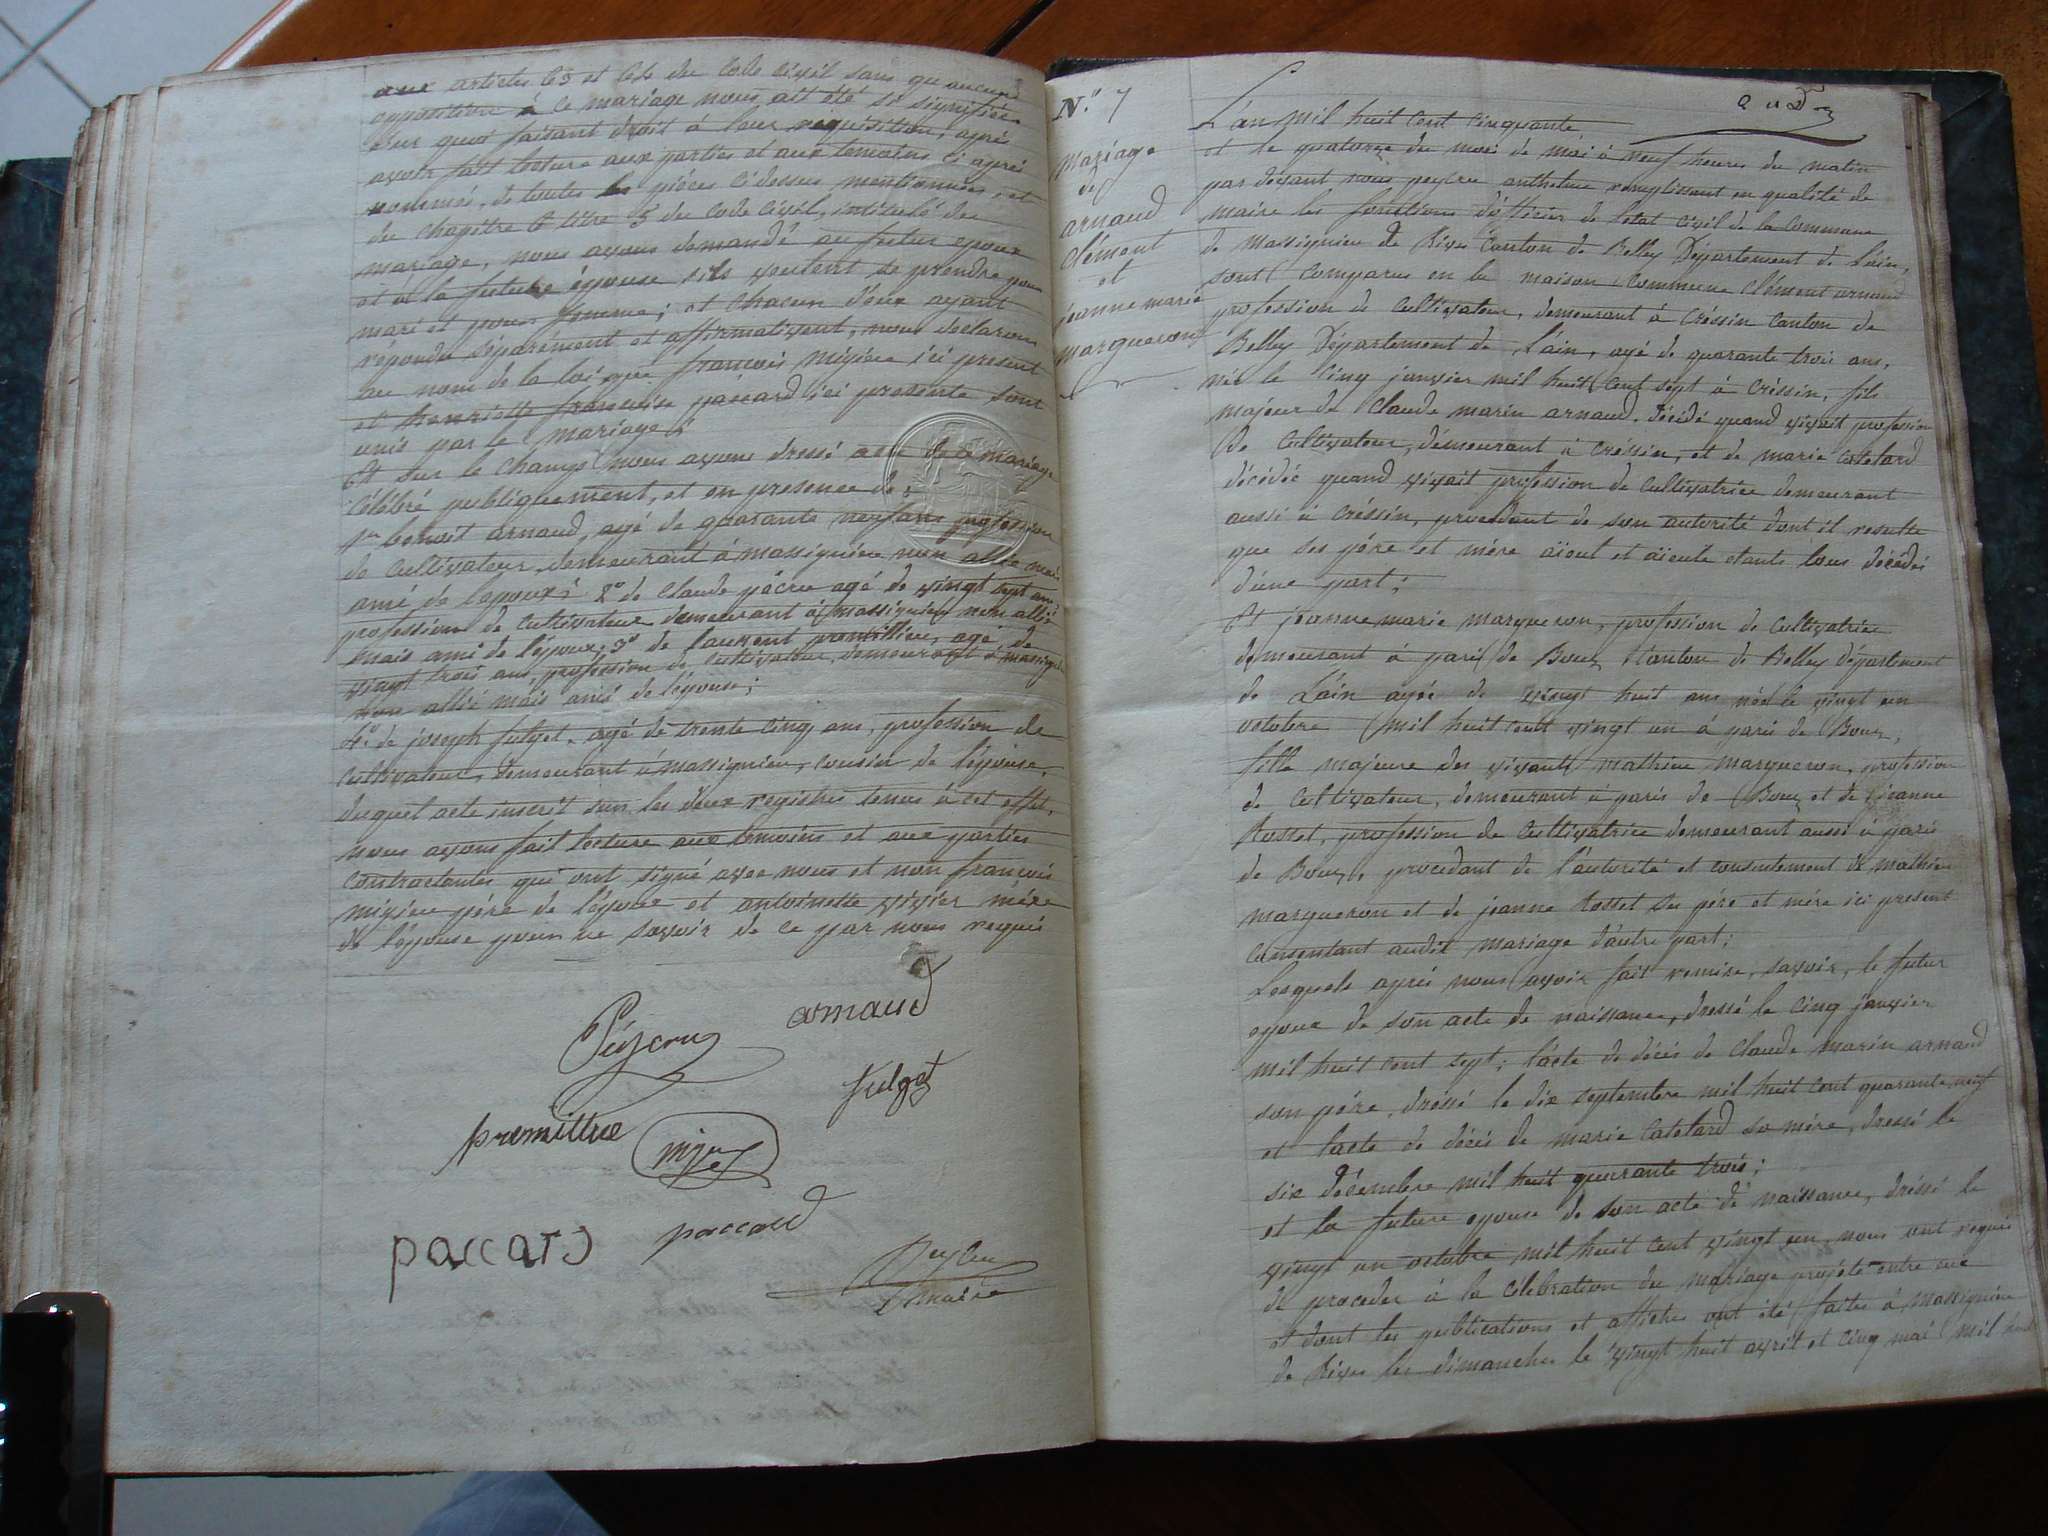 aux articles 63 et 64 du code civil sans qu'aucune
opposition à ce mariage nous ait été si signifiée
sur quoi faisant droit à leur requisition, après
avoir fait lecture aux parties et aux temoins ci après
nommés, de toutes les pièces cidessus mentionnées, et
du chapitre 6 titre 5 du code civil, intitulé du
mariage, nous avons demandé au futur epoux
et à la future épouse s'ils veulent se prendre pour
mari et pour femme; et chacun d'eux ayant
répondu séparément et affirmativent, nous declarons
au nom de la loi que françois migieu ici present
et henriette françoise paccard ici presente sont
unis par le mariage;
Et sur le champ nous avons dressé acte de ce mariage
célébré publiquement, et en presence de:
benoit arnaud, agé de quarante neuf ans profession
de cultivateur demeurant à massignieu non allié mais
ami de l'epoux; 2° de Claude agé de vingt sept ans
profession de cultivateur demeurant à massignieu non allié
mais ami de l'époux; 3° de laurent premillieu, agé de
vingt trois ans, profession de cultivateur, demeurant à massignieu
non allié mais ami de l'épouse;
4° de joseph fulget, agé de trente cinq ans, profession de
cultivateur, demeurant à massignieu, cousin de l'épouse,
duquel acte inscrit sur les deux registres tenus à cet effet,
nous avons fait lecture aux temoins et aux parties
contractantes qui ont signé avec nous et non françois
migieu père de l'époux et antoinette vivier mère
de l'épouse pour ne savoir de ce par nous requis
arnaud
fulget
paccard
paccard
maire
N.° 7
Mariage
de
arnaud
Clément
et
jeanne marie
marqueron
L'an mil huit cent cinquante
et le quatorze du mois de mai à neuf heures du matin
par devant nous peysru anthelme remplissant en qualité de
maire les fonctions d'officier de l'etat civil de la commune
de massignieu de Rives Canton de Belley Département de l'ain,
sont comparus en la maison commune Clément arnaud
profession de cultivateur, demeurant à Créssin Canton de
Belley Département de l'ain, agé de quarante trois ans,
née le cinq janvier mil huit cent sept à Créssin, fils
majeur de Claude marin arnaud, décédé quand vivait profession
de Cultivateur, démeurant à Créssin, et de marie Catelard
décédée quand vivait profession de Cultivatrice demeurant
aussi à Créssin, procedant de son autorité dont il resulte
que ses pére et mére aïeul et aïeule etants tous décédés
d'une part;
Et jeanne marie marqueron, profession de Cultivatrice
demeurant à paris de Bouz Canton de Belley département
de L'ain agée de vingt huit ans née le vingt un
octobre mil huit cent vingt un à paris de Bouz,
fille majeure des vivants mathieu marqueron, profession
de Cultivateur, demeurant à paris de Bouz et de jeanne
Rosset, profession de Cultivatrice demeurant aussi à paris
de Bouz, procedant de l'autorité et consentement de mathieu
marqueron et de jeanne Rosset ses pére et mére ici present
consentant audit mariage d'autre part;
Lesquels après nous avoir fait remise, savoir, le futur
epoux de son acte de naissance, dressé le cinq janvier
mil huit cent sept; l'acte de décés de Claude marin arnaud
son pére, dréssé le dix septembre mil huit cent quarante neuf
et l'acte de décés de marie Catelard sa mére, dressé le
six décembre mil huit quarante trois;
et la future epouse de son acte de naissance, dréssé le
vingt un octobre mil huit cent vingt un, nous ont requis
de proceder à la célébration du mariage projété entre eux
et dont les publications et affiches ont été faites à massignieu
de Rives les dimanches le vingt huit avril et cinq mai mil huit